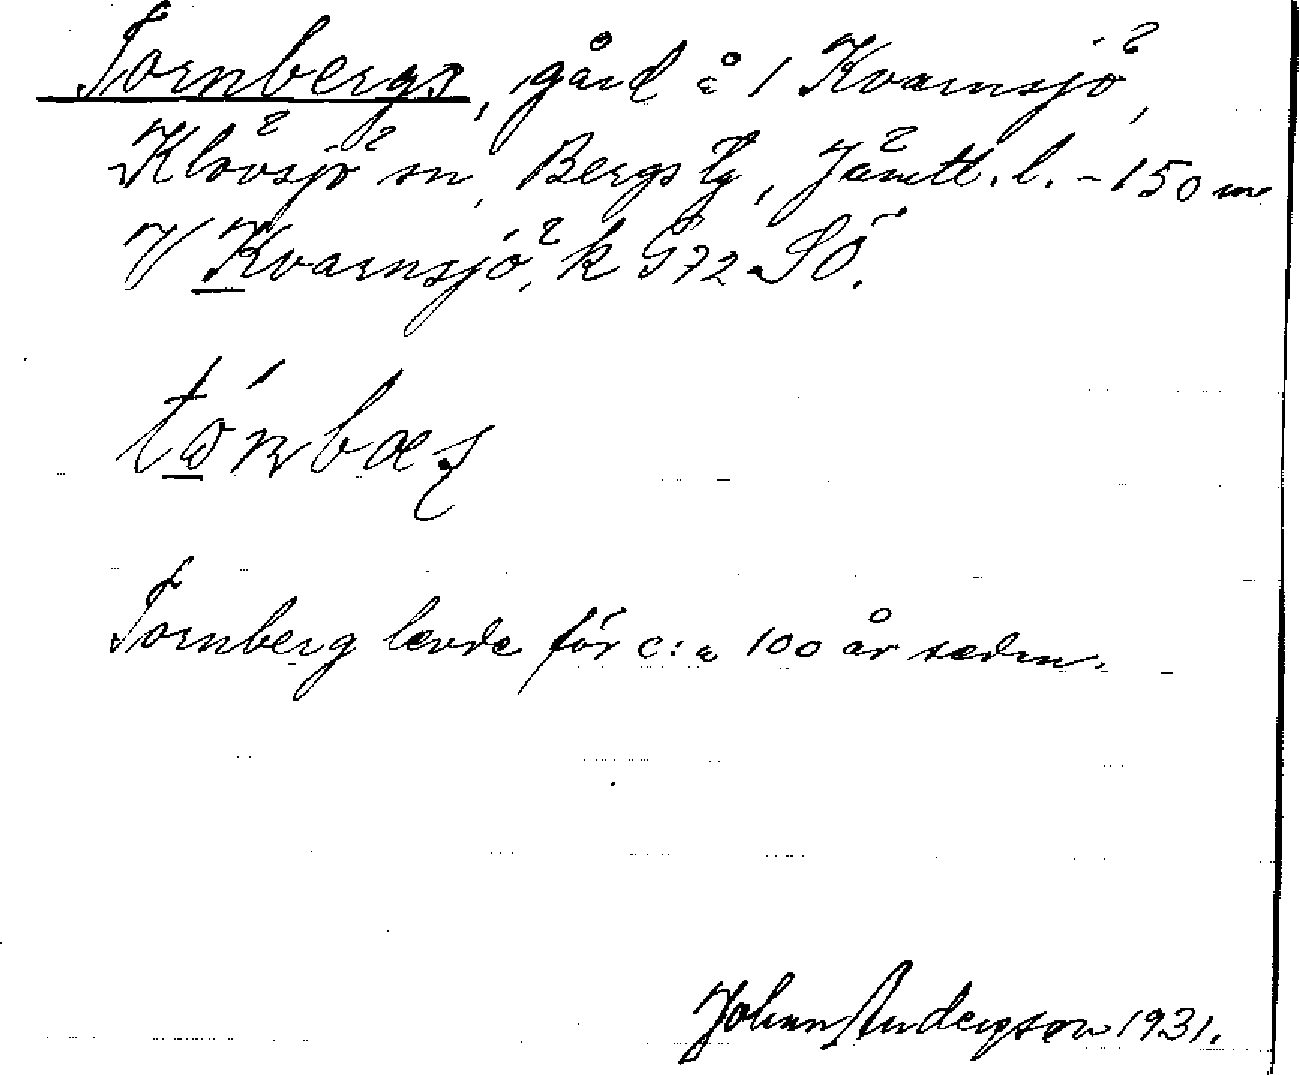 Tornbergs, gård å 1 Kvarnsjö,
Klövsjö sn, Bergs tg, Jämtl. l. - 150 m
V Kvarnsjö, k G 72 SÖ.
Tornberg levde för c:a 100 år sedan.
Johan Anderson 1931.